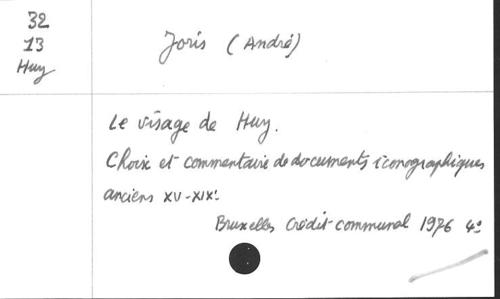 32
13
Huy
Joris (André)
Le visage de Huy.
Choix et commentaire de documents iconographiques
anciens XV-XIXe.
Bruxelles Crédit communal 1976 4°